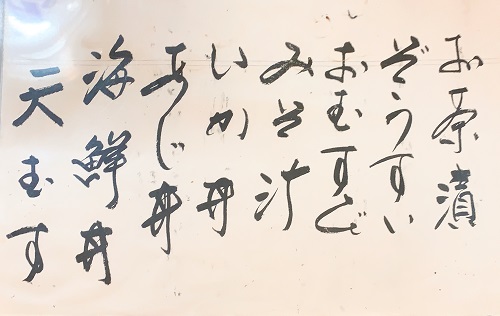 お茶漬
ぞうすい
おむすび
みそ汁
いか丼
あじ丼
海鮮丼
天むす